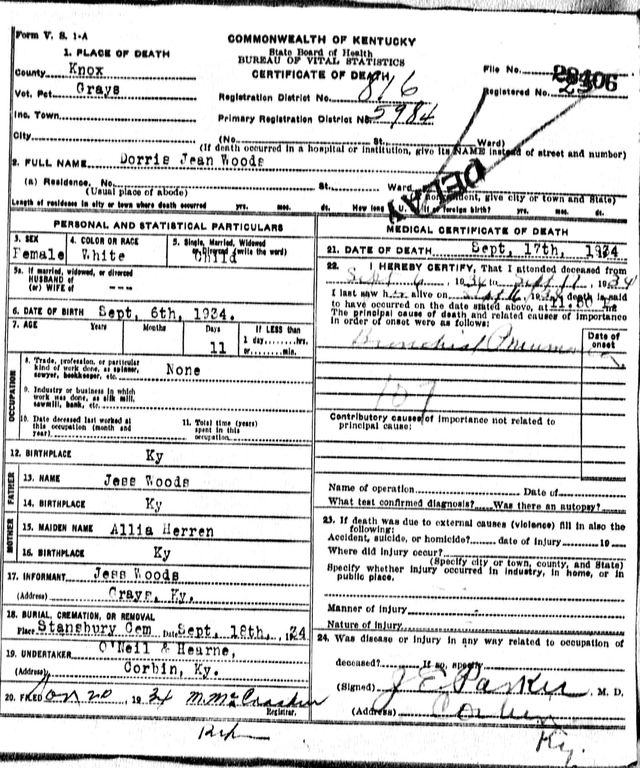 Form V. S. 1-A
COMMONWEALTH OF KENTUCKY
State Board of Health
BUREAU OF VITAL STATISTICS
CERTIFICATE OF DEATH
1. PLACE OF DEATH
County Knox
Vot. Pct. Grays
Inc. Town
City
File No. 28406
Registered No. 25
Registration District No. 816
Primary Registration District No. 5984
DELAY
(No. St., Ward)
(If death occurred in a hospital or institution, give its NAME instead of street and number)
2. FULL NAME Dorris Jean Woods
(a) Residence. No. St. Ward
(Usual place of abode) give city or town and State)
Length of residence in city or town where death occurred yrs. mos. ds. How long if of foreign birth? yrs. mos. ds.
PERSONAL AND STATISTICAL PARTICULARS
3. SEX Female
4. COLOR OR RACE White
5. Single, Married, Widowed or Divorced (write the word) Child
5a. If married, widowed, or divorced
HUSBAND of
(or) WIFE of ---
6. DATE OF BIRTH Sept, 6th, 1934.
7. AGE Years Months Days 11 If LESS than
1 day, hrs.
or min.
OCCUPATION
8. Trade, profession, or particular kind of work done, as spinner, sawyer, bookkeeper, etc. None
9. Industry or business in which work was done, as silk mill, sawmill, bank, etc.
10. Date deceased last worked at this occupation (month and year)
11. Total time (years) spent in this occupation
12. BIRTHPLACE Ky
FATHER
13. NAME Jess Woods
14. BIRTHPLACE Ky
MOTHER
15. MAIDEN NAME Allia Herren
16. BIRTHPLACE Ky
17. INFORMANT Jess Woods
(Address) Grays, Ky.
18. BURIAL, CREMATION, OR REMOVAL
Place Stansbury Cem Date Sept, 18th, 34
19. UNDERTAKER O'Neil & Hearne,
(Address) Corbin, Ky.
20. FILED Nov 20, 1934 M. McCracken
Registrar.
MEDICAL CERTIFICATE OF DEATH
21. DATE OF DEATH Sept, 17th, 1934
22. I HEREBY CERTIFY, That I attended deceased from
Sept 6, 1934 to Sept 17, 1934
I last saw h alive on Sept 16, 1934, death is said
to have occurred on the date stated above, at m
The principal cause of death and related causes of importance
in order of onset were as follows:
Date of onset
Bronchial Pneumonia
107
Contributory causes of importance not related to
principal cause:
Name of operation Date of
What test confirmed diagnosis? Was there an autopsy?
23. If death was due to external causes (violence) fill in also the
following:
Accident, suicide, or homicide? date of injury 19
Where did injury occur?
(Specify city or town, county, and State)
Specify whether injury occurred in industry, in home, or in
public place.
Manner of injury
Nature of injury
24. Was disease or injury in any way related to occupation of
deceased? If so, specify
(Signed) J E Parker, M. D.
(Address) Corbin
Ky.